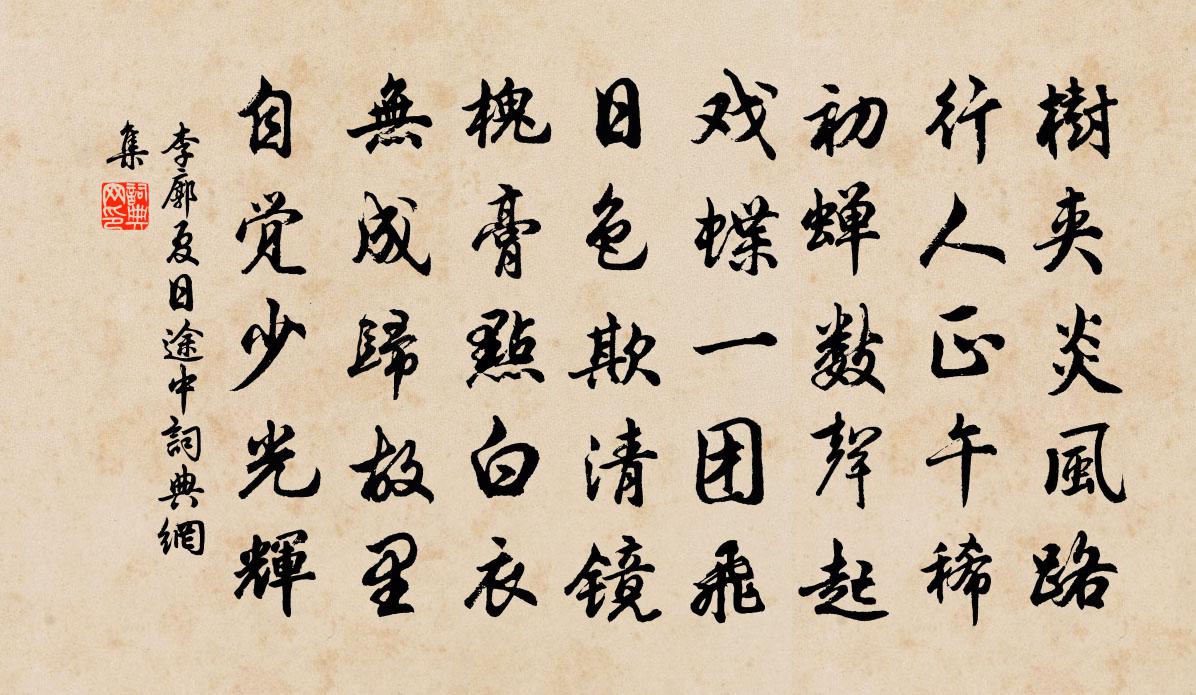 樹夾炎風路
行人正午稀
初蝉數聲起
戏蝶一团飛
日色欺清镜
槐膏點白衣
無成歸故里
自觉少光輝
李廓夏日途中詞典網
集
詞典网印